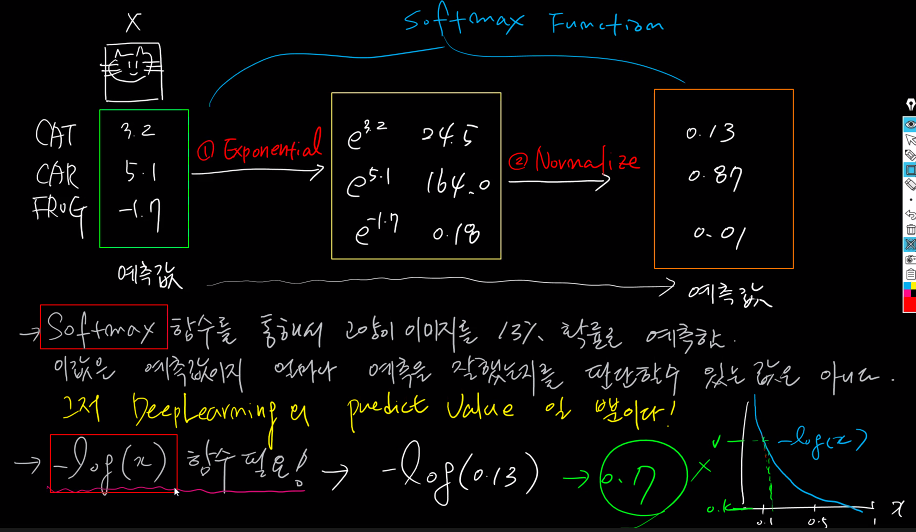 Softmax Function
X
CAT 3.2
CAR 5.1
FROG -1.7
① Exponential
e^3.2 24.5
e^5.1 164.0
e^-1.7 0.18
② Normalize
0.13
0.87
0.01
예측값
예측값
→ Softmax 함수를 통해서 고양이 이미지를 13% 확률로 예측함.
이값은 예측값이지 얼마나 예측을 잘했는지를 판단할수 있는 값은 아니다.
그저 DeepLearning의 predict value 일 뿐이다!
→ -log(x) 함수 필요! → -log(0.13) →
-log(x)
0.1 0.5 1 x